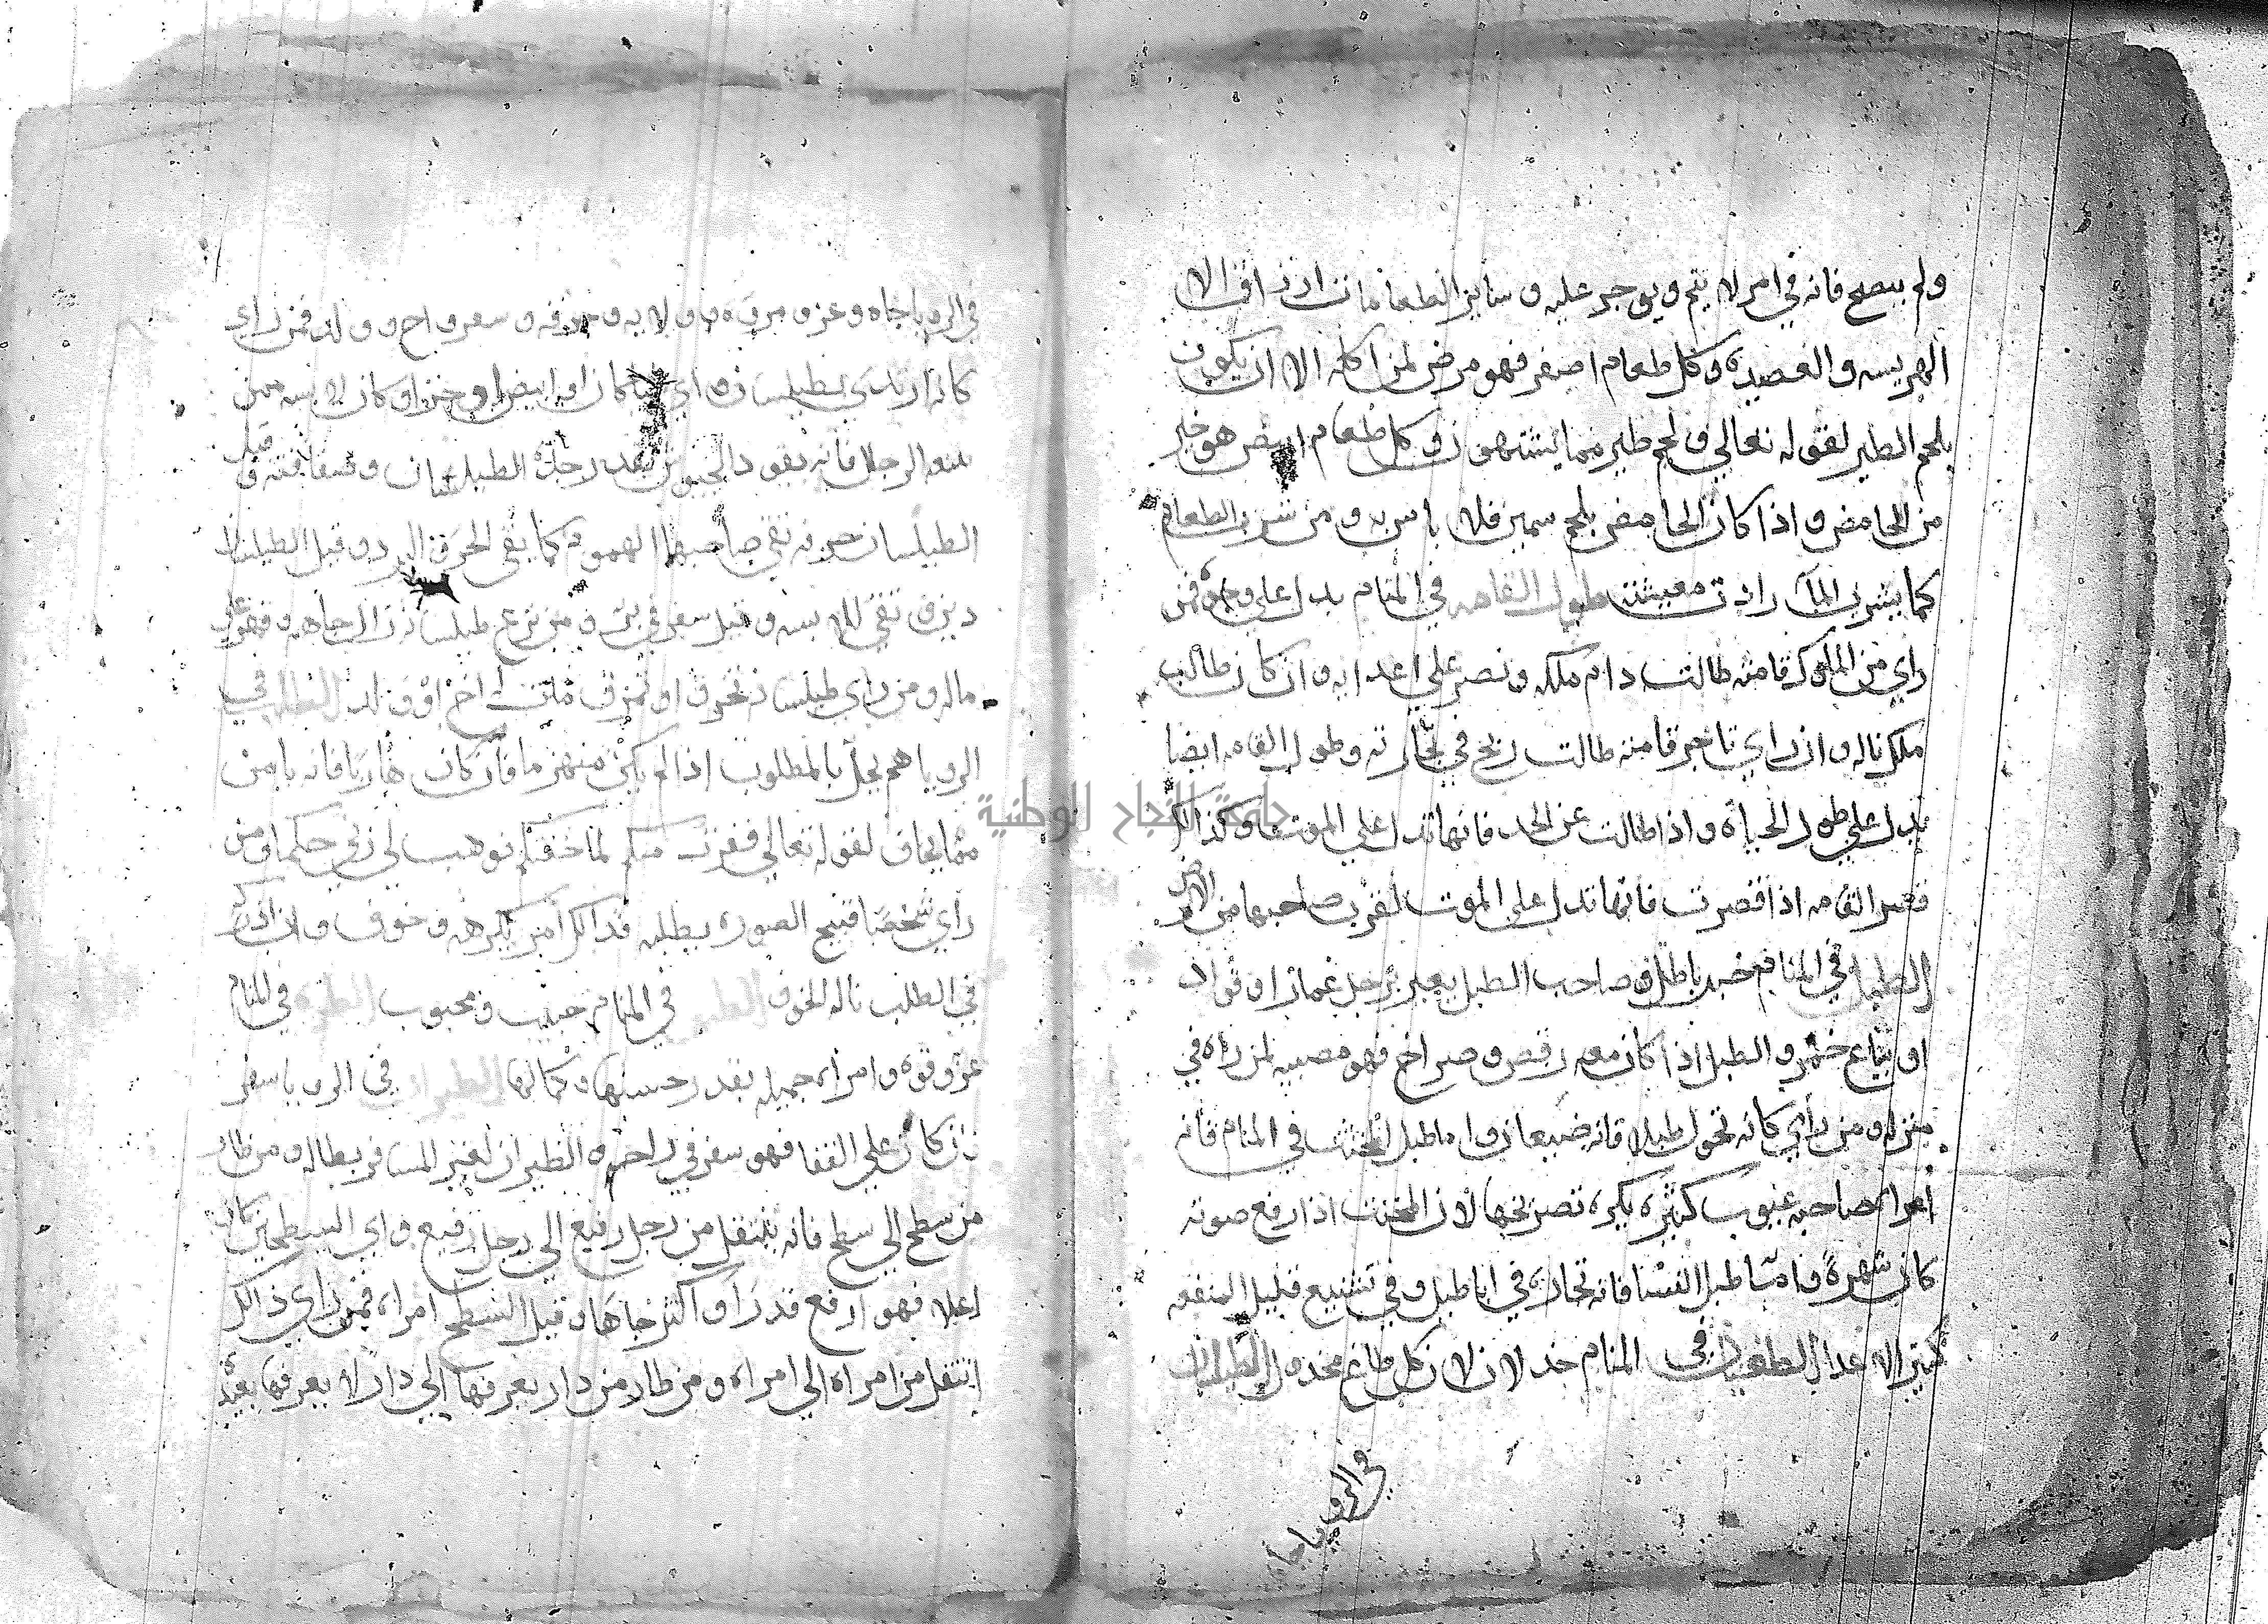 ولم ينصح فانه في امر لا يتم ويوجر عليه وساير الطعامات ارزاق الا
الهريسه والعصيده وكل طعام اصفر فهو مرض لمن اكله الا ان يكون
بلحم الطير لقوله تعالي ولحم طير مما يشتهون وكل طعام ابيض هو خير
من الحامض واذا كان الحامض بلحم سمين فلا باس به ومن شرب الطعام
كما يشرب الماء زادت معيشته طول القامه في المنام يدل علي وجوه فمن
راي من الملوك قامته طالت دام ملكه ونصر علي اعدايه وان كان طالب
ملك ناله وان راي تاجر قامته طالت ربح في تجارته وطول القامه ايضا
يدل علي طول الحياة واذا طالت عن الحد فانها تدل علي الموت وكذالك
قصر القامه اذا قصرت فانها تدل علي الموت لقرب صاحبها من الارض
الطبل في المنام خبر باطل وصاحب الطبل يعبر برجل غماز او قواد
او بياع خمر والطبل اذا كان معه رقص وصراخ فهو مصيبه لمن راه في
منزله ومن راي كانه تحول طبلا فانه ضيعان واما طبل المخنث في المنام فانه
امراه صاحبه عيوب كثيره يكره تصريحها لان المخنث اذا رفع صوته
كان شهرة واما طبل النسا فانه تجاره في اباطيل وفي تشنيع قليل المنفعه
كثير الاعدا الطغيان في المنام خذلان لان كل طاغ مخذول الطيلسان
في الرويا
في الرويا جاه وعز ومروه وولايه وحرفه وسفر واخ وولد فمن راي
كانه ارتدي بطيلسان واي لون كان او ابيض او خز او كان لابسه ممن
يتبعه الرجال فانه يقود الجيوش بقدر جدة الطيلسان وصفاقته وقيل
الطيلسان حرفه تقي صاحبها الهموم كما يقي الحر والبرد وقيل الطيلسان
دين وتقي للابسه وقيل سفر في بر ومن نزع طيلسانه زال جاهه وقهر علي
ماله ومن راي طيلسانه تحرق او تمزق مات له اخ او ولد الطلب في
الرويا هم يحل بالمطلوب اذا لم يكن منهزما فان كان هاربا فانه يامن
مما يخاف لقوله تعالي ففررت منكم لما خفتكم فوهب لي ربي حكما ومن
راي شخصا قبيح الصوره يطلبه فذالك امر يكرهه وخوف وان ادركه
في الطلب ناله الخوف في المنام حبيب ومحبوب الطره في المنام
عز وقوه وامراه جميله بقدر حسنها وكمالها الطيران في الرويا سفر
وان كان علي القفا فهو سفر في راحه والطيران لغير المسافر بطاله ومن طار
من سطح الي سطح فانه ينتقل من رجل رفيع الي رجل رفيع واي السطحين كان
اعلا فهو ارفع قدرا واكثر جاها وقيل السطح امراه فمن راي ذالك
انتقل من امراه الي امراه ومن طار من دار يعرفها الي دار لا يعرفها بعيدة
جامعة النجاح الوطنية